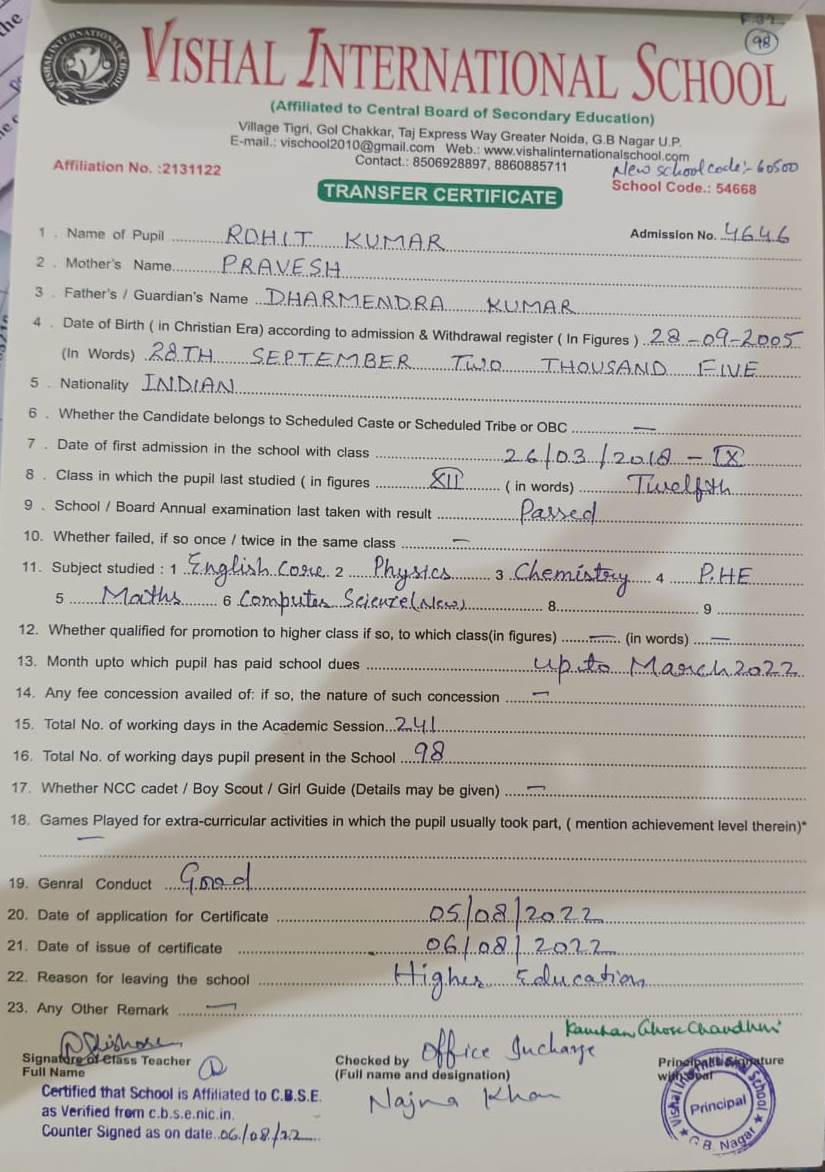 F-32
98
VISHAL INTERNATIONAL SCHOOL
VISHAL INTERNATIONAL SCHOOL
(Affiliated to Central Board of Secondary Education)
Village Tigri, Gol Chakkar, Taj Express Way Greater Noida, G.B Nagar U.P.
E-mail.: vischool2010@gmail.com Web.: www.vishalinternationalschool.com
Contact.: 8506928897, 8860885711
New school code:- 60500
Affiliation No. :2131122 School Code.: 54668
TRANSFER CERTIFICATE
1 . Name of Pupil ROHIT KUMAR Admission No. 4646
2 . Mother's Name PRAVESH
3 . Father's / Guardian's Name DHARMENDRA KUMAR
4 . Date of Birth ( in Christian Era) according to admission & Withdrawal register ( In Figures ) 28-09-2005
(In Words) 28TH SEPTEMBER TWO THOUSAND FIVE
5 . Nationality INDIAN
6 . Whether the Candidate belongs to Scheduled Caste or Scheduled Tribe or OBC —
7 . Date of first admission in the school with class 26/03/2018 - IX
8 . Class in which the pupil last studied ( in figures XII ( in words) Twelfth
9 . School / Board Annual examination last taken with result Passed
10. Whether failed, if so once / twice in the same class —
11. Subject studied : 1 English Core 2 Physics 3 Chemistry 4 P.HE
5 Maths 6 Computer Science(New) 8 9
12. Whether qualified for promotion to higher class if so, to which class(in figures) — (in words) —
13. Month upto which pupil has paid school dues up to March 2022
14. Any fee concession availed of: if so, the nature of such concession —
15. Total No. of working days in the Academic Session 241
16. Total No. of working days pupil present in the School 98
17. Whether NCC cadet / Boy Scout / Girl Guide (Details may be given) —
18. Games Played for extra-curricular activities in which the pupil usually took part, ( mention achievement level therein)*
—
19. Genral Conduct Good
20. Date of application for Certificate 05/08/2022
21. Date of issue of certificate 06/08/2022
22. Reason for leaving the school Higher Education
23. Any Other Remark —
Kanchan Ghose Chaudhuri
Signature of Class Teacher Checked by Office Incharge Principal Signature
Full Name (Full name and designation) with seal
Najma Khan
Certified that School is Affiliated to C.B.S.E.
as Verified from c.b.s.e.nic.in.
Counter Signed as on date 06/08/22
Vishal International School
Principal
G.B. Nagar